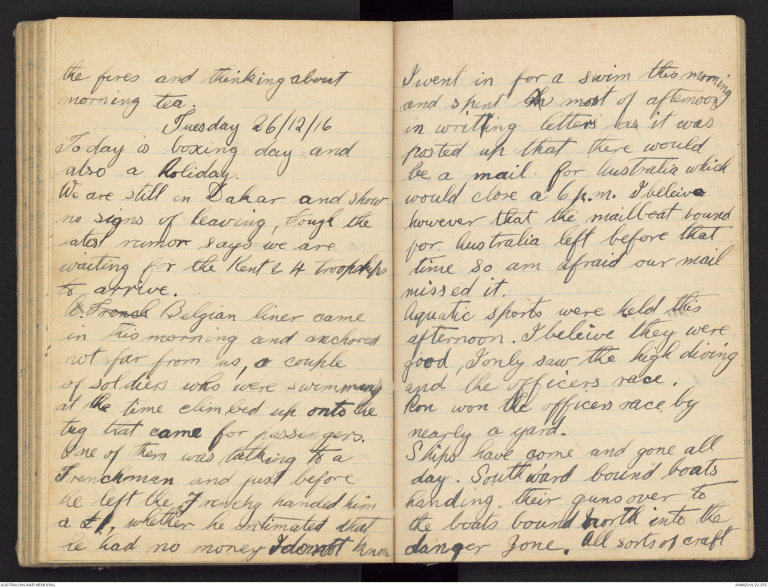 the fires and thinking about
morning tea.
Tuesday 26/12/16
To day is boxing day and
also a holiday.
We are still in Dakar and show
no signs of leaving, though the
latest rumor says we are
waiting for the Kent & 4 troopships
to arrive.
A French Belgian liner came
in this morning and anchored
not far from us, a couple
of soldiers who were swimming
at the time climbed up onto the
tug that came for passengers.
One of them was talking to a
Frenchman and just before
he left the Frenchy handed him
a £1, whether he intimated that
he had no money I dont know
I went in for a swim this morning
and spent most of afternoon
in writting letters as it was
posted up that there would
be a mail for Australia which
would close a 6 p.m. I beleive
however that the mailboat bound
for Australia left before that
time so am afraid our mail
missed it.
Aquatic sports were held this
afternoon. I beleive they were
good, I only saw the high diving
and the officers race.
Ron won the officers race by
nearly a yard.
Ships have come and gone all
day. Southward bound boats
handing their guns over to
the boats bound North into the
danger zone. All sorts of craft
AUSTRALIAN WAR MEMORIAL